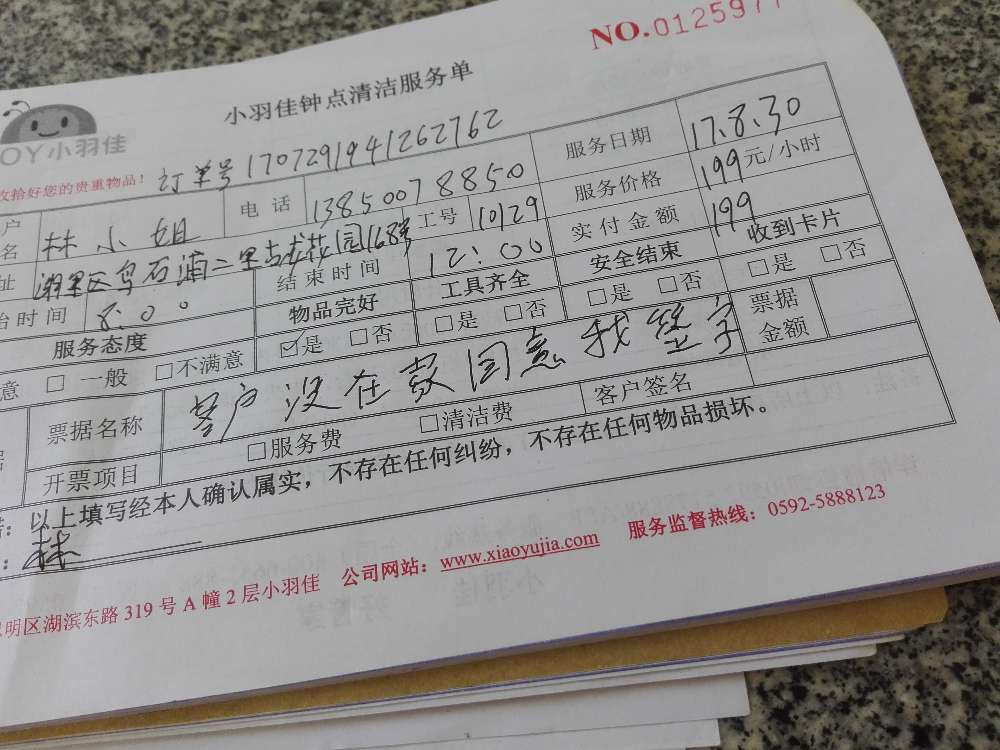 NO.0125977
小羽佳钟点清洁服务单
OY小羽佳
收拾好您的贵重物品!
订单号 1707291941262762
户名 林小姐 电话 13850078850 服务日期 17.8.30
工号 10129 服务价格 199元/小时
址 湖里区乌石浦二里 花园168号 实付金额 199
始时间 8:00 结束时间 12:00 安全结束 收到卡片
服务态度 物品完好 工具齐全 □是 □否 □是 □否
意 □一般 □不满意 ☑是 □否 □是 □否 票据金额
票据名称 客户没在家同意我签字
开票项目 □服务费 □清洁费 客户签名
:以上填写经本人确认属实,不存在任何纠纷,不存在任何物品损坏。
:林
明区湖滨东路 319 号 A 幢 2 层小羽佳 公司网站:www.xiaoyujia.com 服务监督热线:0592-5888123